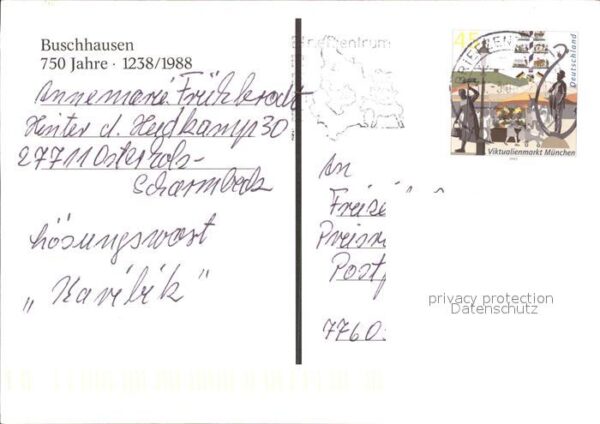 Buschhausen
750 Jahre · 1238/1988
Annemarie
Hinter d. Heidkamp 30
27711 Osterholz-
Scharmbeck
Lösungswort
"Karibik"
Briefzentrum
BRIEFZEN
45
Deutschland
Viktualienmarkt München
An
Post
7760
privacy protection
Datenschutz